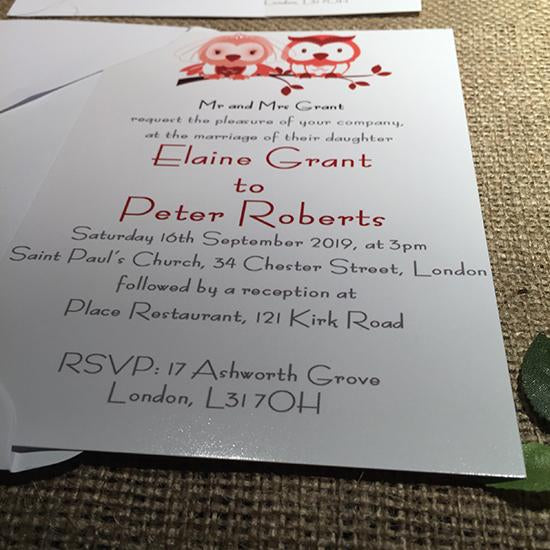 London, L31 7OH
Mr and Mrs Grant
request the pleasure of your company,
at the marriage of their daughter
Elaine Grant
to
Peter Roberts
Saturday 16th September 2019, at 3pm
Saint Paul's Church, 34 Chester Street, London
followed by a reception at
Place Restaurant, 121 Kirk Road
RSVP: 17 Ashworth Grove
London, L31 7OH